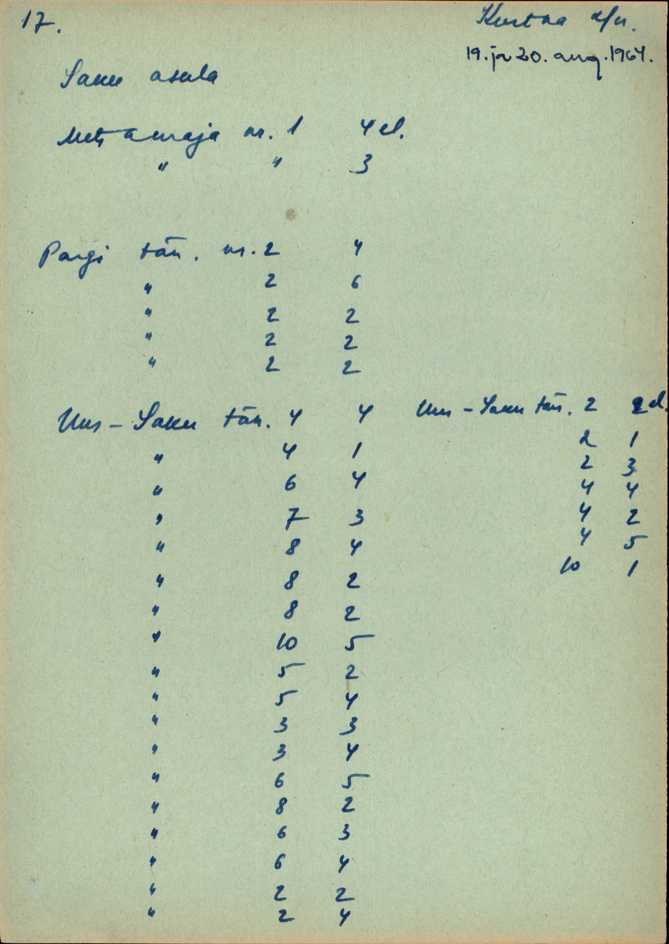 17.
Kurtna k/n.
19. ja 20. aug. 1964.
Saku asula
Metsamaja nr. 1 4 el.
" " 3
Pargi tän. nr. 2 4
" 2 6
" 2 2
" 2 2
" 2 2
Uus-Saku tän. 4 4
" 4 1
" 6 4
" 7 3
" 8 4
" 8 2
" 8 2
" 10 5
" 5 2
" 5 4
" 3 3
" 3 4
" 6 5
" 8 2
" 6 3
" 6 4
" 2 2
" 2 4
Uus-Saku tän. 2 2 el.
2 1
2 3
4 4
4 2
4 5
10 1